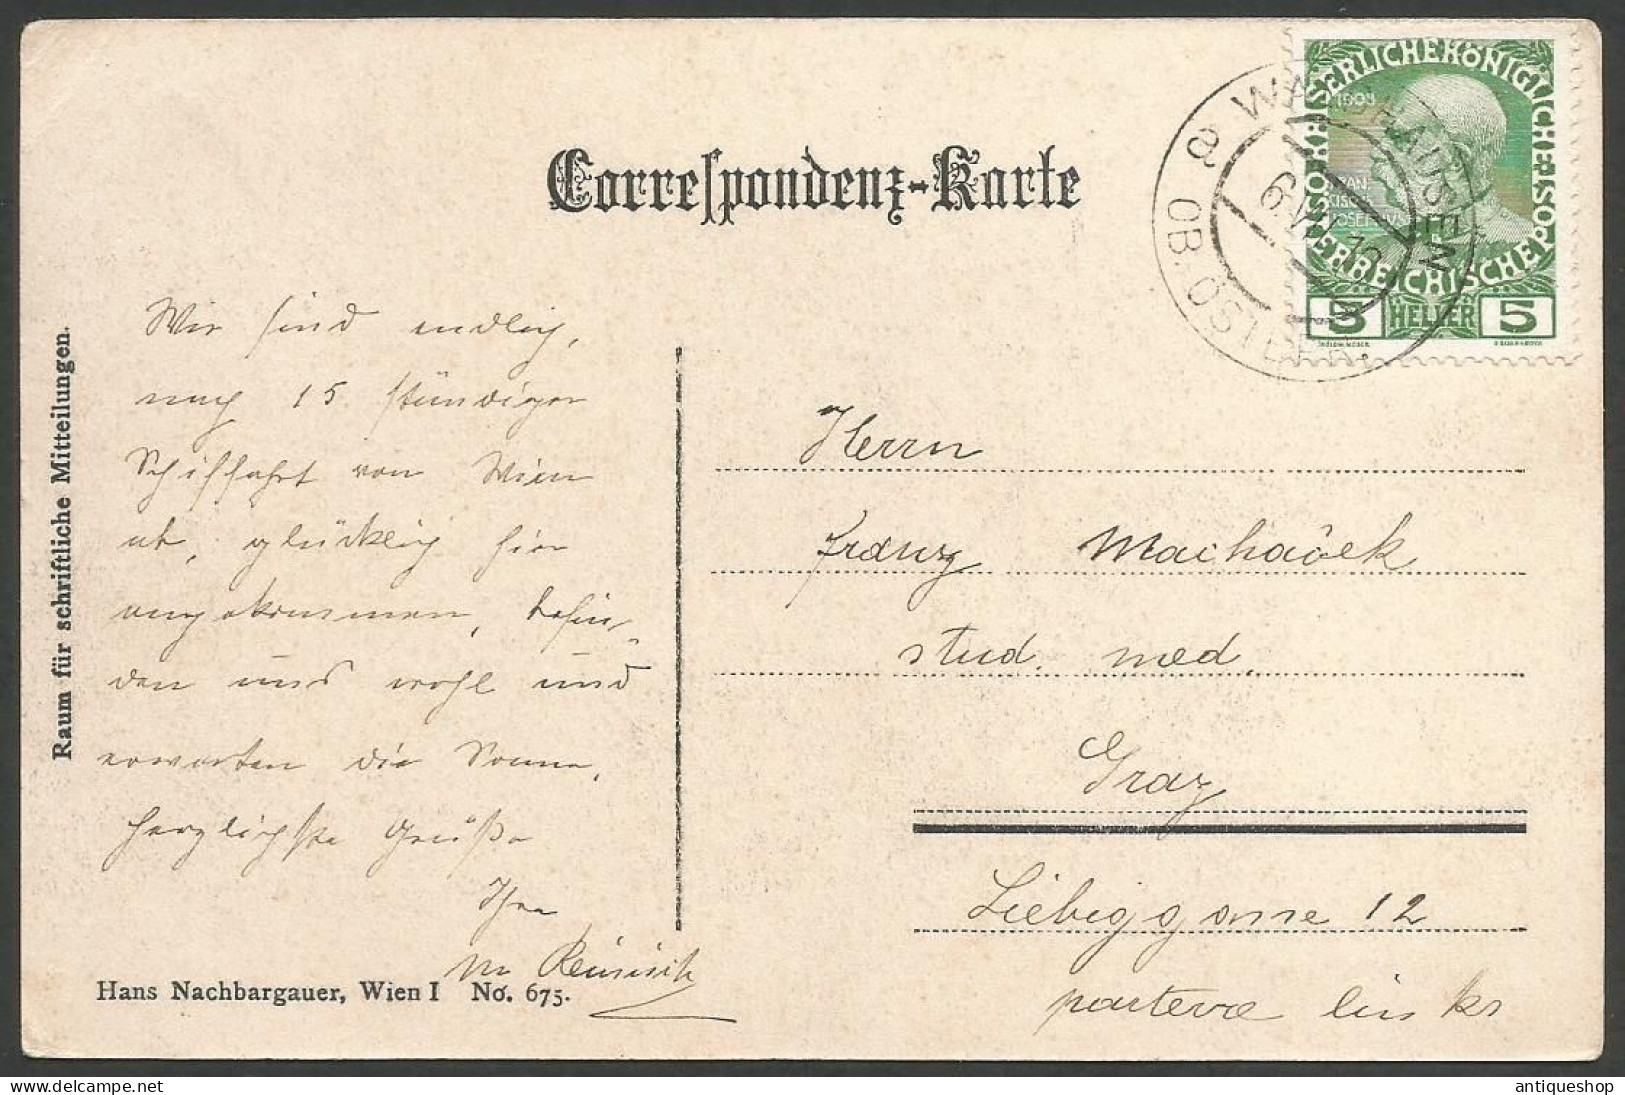 Correspondenz-Karte
WALDHAUSEN
OB. ÖSTERR.
a
KAISERLICHE KÖNIGLICHE
ÖSTERREICHISCHE POST
1908
FRAN
CISC
IOSEPHVS I
5 HELLER 5
Raum für schriftliche Mitteilungen.
Wir sind endlich,
nach 15 stündiger
Schiffahrt von Wien
ab, glücklich hier
angekommen, befin-
den uns wohl und
erwarten die Sonne.
herzlichste Grüße
Ihre
M Reinisch
Herrn
Franz Machaček
stud. med.
Graz
Liebiggasse 12
parterre links
Hans Nachbargauer, Wien I No. 675.
antiqueshop